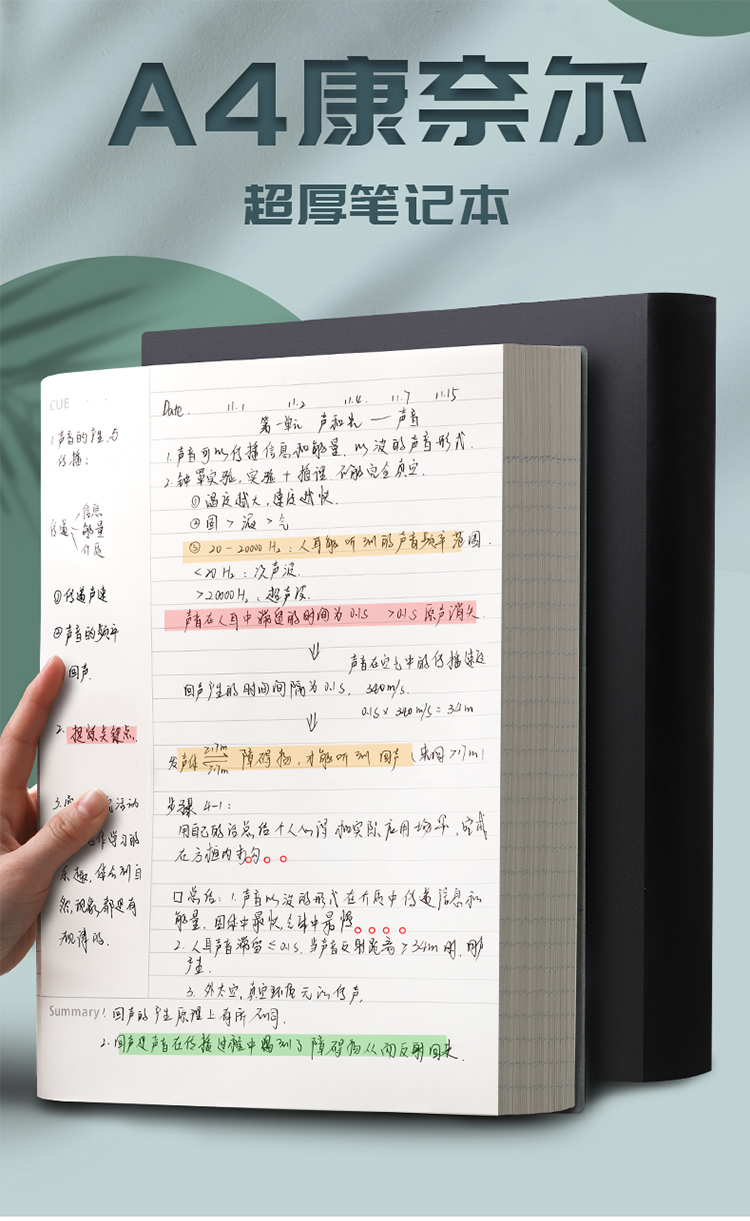 A4康奈尔
超厚笔记本
CUE
Date. 11.1 11.2 11.4. 11.7 11.15
第一单元 声和光 — 声音
1.声音的产生与
传播:
1.声音可以传播信息和能量. 以波的声音形式.
2.钟罩实验, 实验+推理. 不能完全真空.
①温度越大, 速度越快.
②固 > 液 > 气
③ 20-20000 Hz: 人耳能听到的声音频率范围.
<20Hz: 次声波.
>20000Hz: 超声波.
声音在人耳中滞留的时间为0.1s >0.1s 原声消失.
传递
信息
能量
介质
①传递声速
②声音的频率
回声.
声音在空气中的传播速度
回声产生的时间间隔为0.1s, 340m/s.
0.1s×340m/s=34m
2. 捉炼关键点.
发声体 ≥17m 障碍物, 才能听到回声 (来回>17m)
步骤 4-1:
用自己的话总结个人心得和实际应用场景, 完成
在方框内打勾
口总结: 1.声音以波的形式在介质中传递信息和
能量. 固体中最快, 气体中最慢
2. 人耳声音滞留≤0.1s, 当声音反射距离>34m时, 回声
产生.
3. 外太空, 真空环境无法传声.
3.
活动
学习的
乐趣. 体会到自
然现象都是有
规律的.
Summary 1. 回声的产生原理上有所不同.
2. 回声是声音在传播过程中遇到了障碍物从而反射回来.